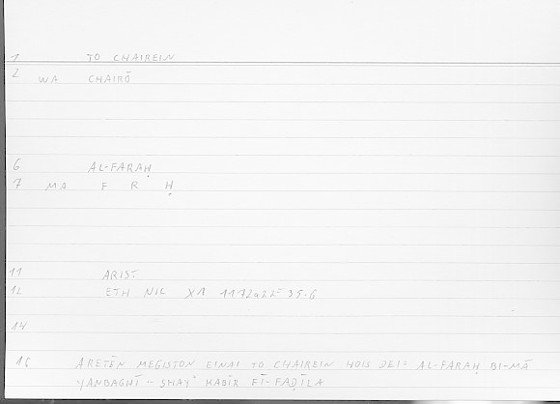 1 TO CHAIREIN
2 WA CHAIRŌ
6 AL-FARAḤ
7 MA F R Ḥ
11 ARIST
12 ETH NIC X1 1172a22- 35.6
14
16 ARETĒN MEGISTON EINAI TO CHAIREIN HOIS DEI= AL-FARAḤ BI-MĀ
YANBAGHĪ - SHAY' KABĪR FĪ-FAḌĪLA